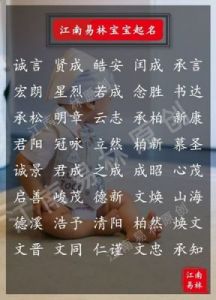 江南易林宝宝起名
诚言 贤成 皓安 闰成 承言
宏朗 星烈 若成 念胜 书达
承松 明章 云志 承柏 新康
君阳 冠咏 立然 柏新 慕圣
诚景 君成 之成 成昭 心茂
启善 峻茂 德新 文焕 山海
德溪 浩予 清阳 柏然 焕文
文晋 文同 仁谨 文忠 承知
江南易林原创
江南
易林